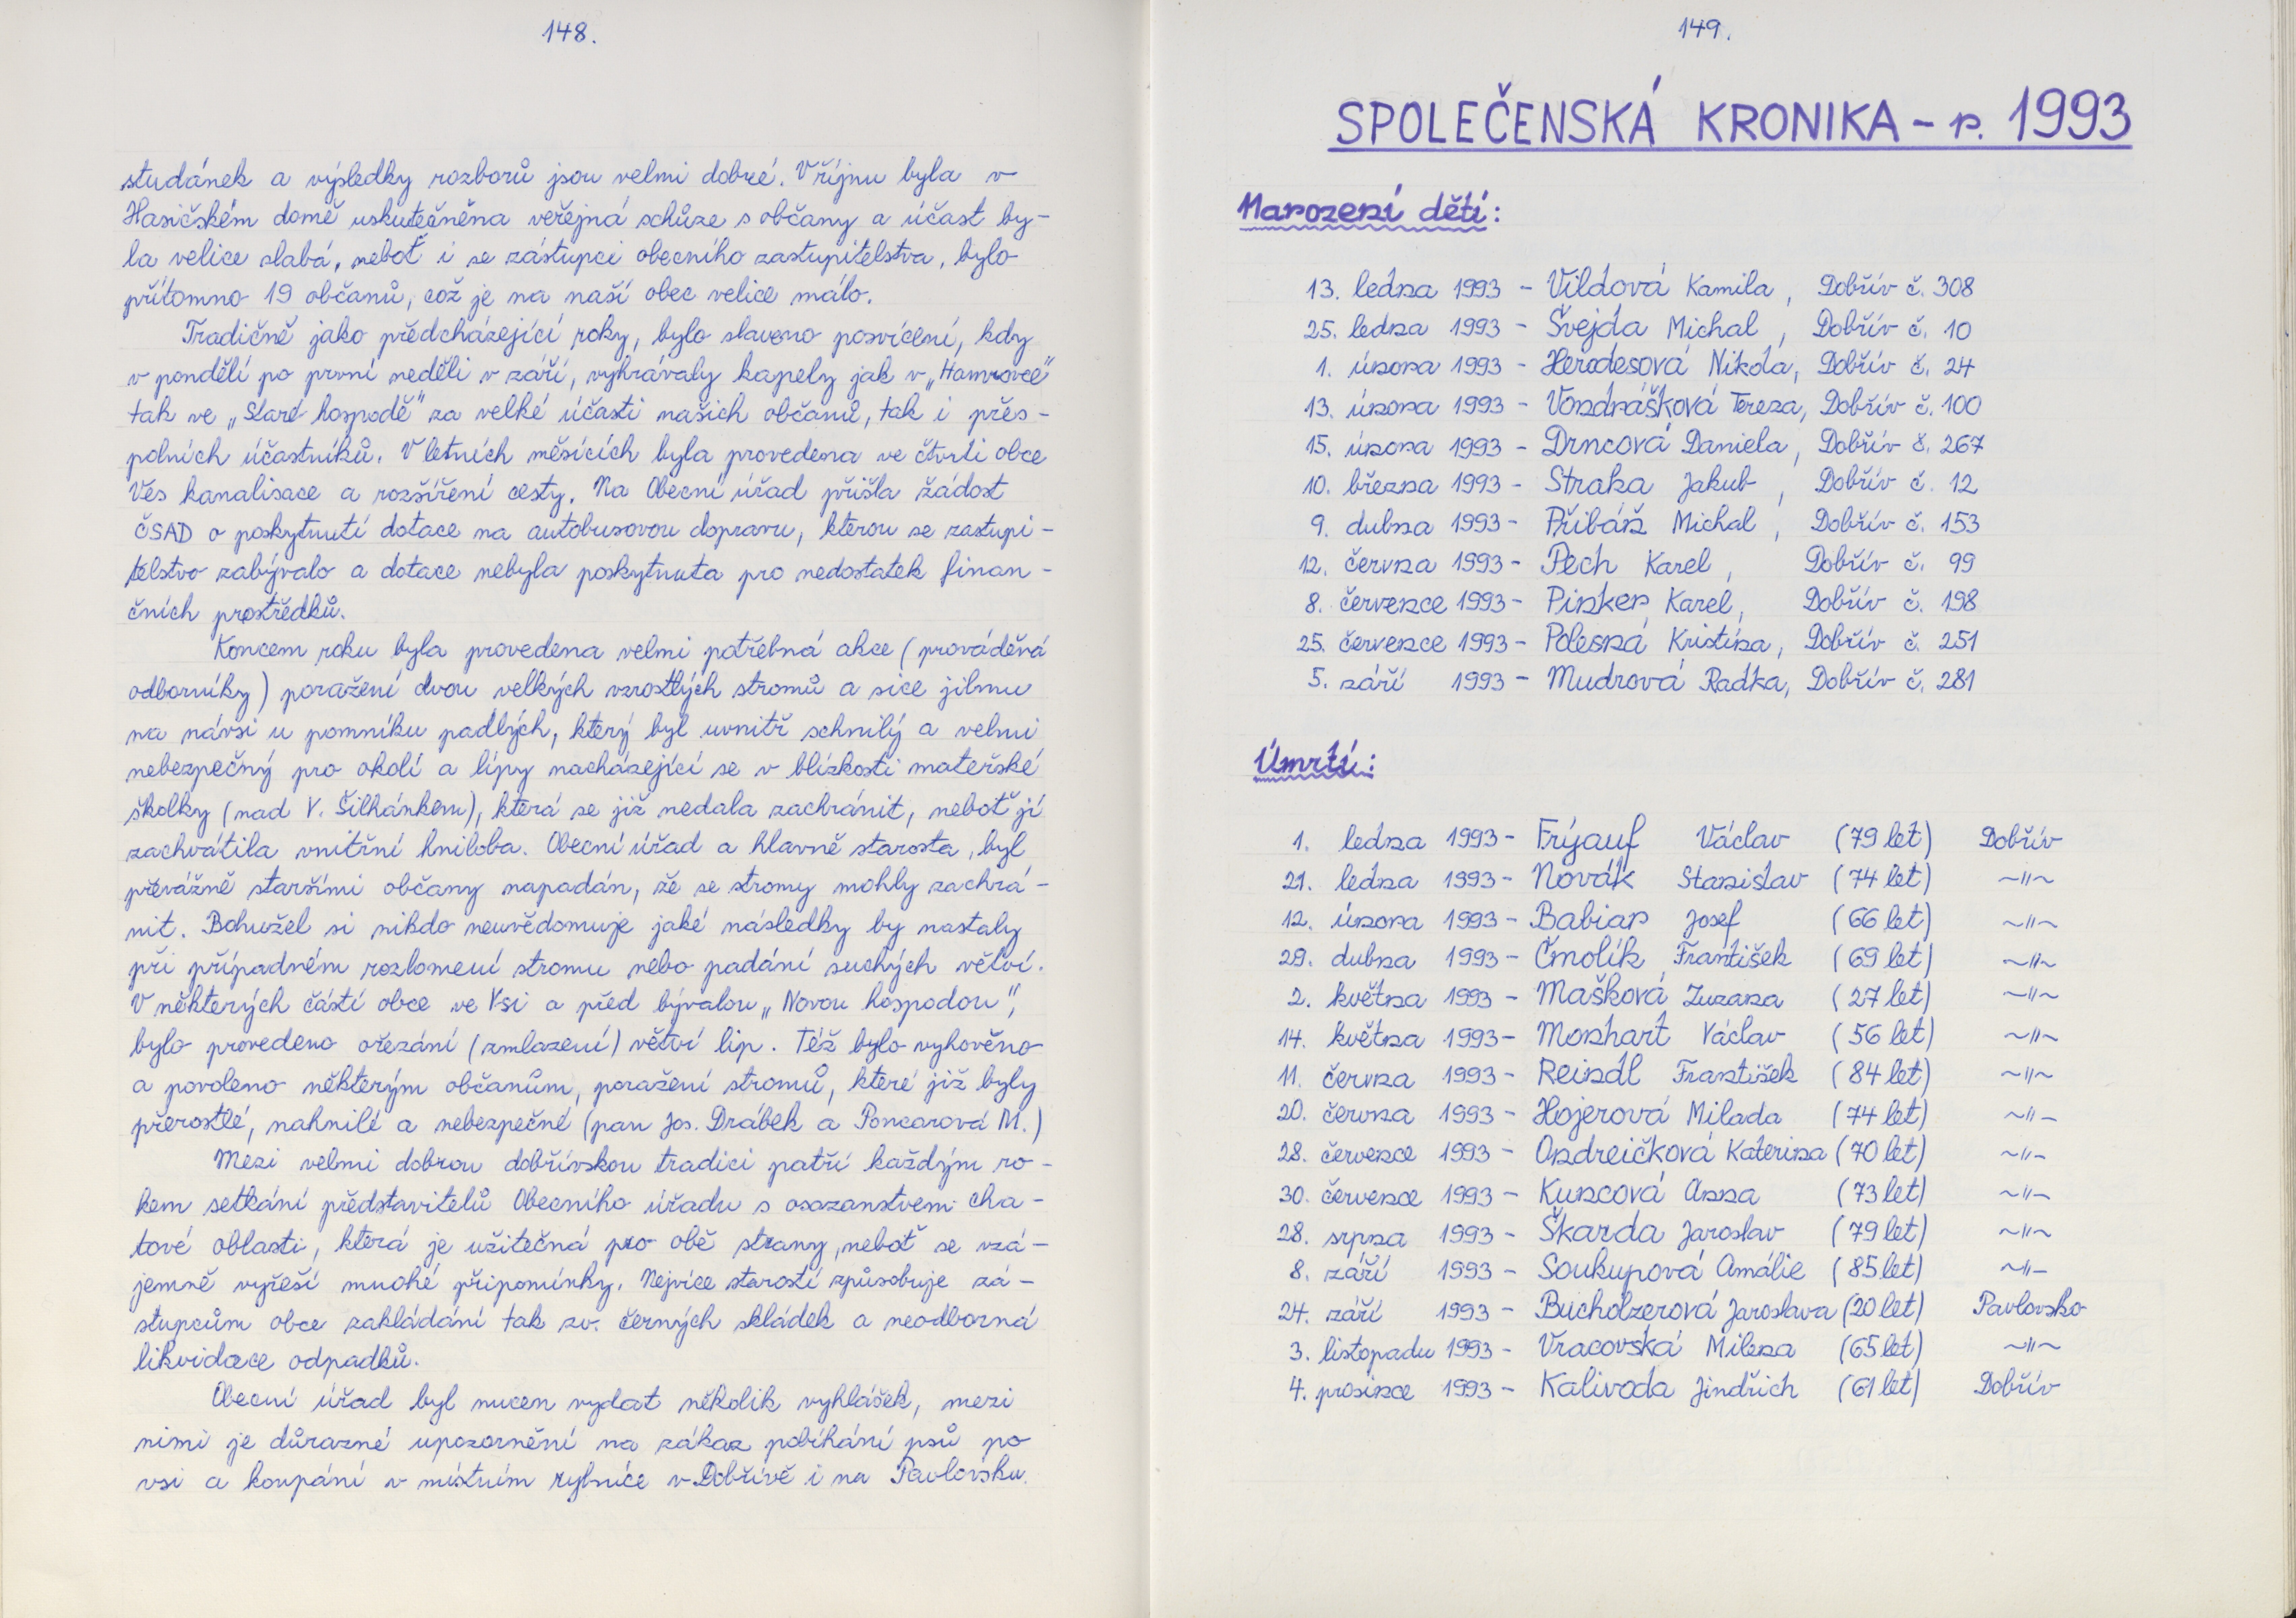 148.
studánek a výsledky rozborů jsou velmi dobré. V říjnu byla v
Hasičském domě uskutečněna veřejná schůze s občany a účast by-
la velice slabá, neboť i se zástupci obecního zastupitelstva, bylo
přítomno 19 občanů, což je na naší obec velice málo.
Tradičně jako předcházející roky, bylo slaveno posvícení, kdy
v pondělí po první neděli v září, vyhrávaly kapely jak v „Hamrovce"
tak ve „Staré hospodě" za velké účasti našich občanů, tak i přes-
polních účastníků. V letních měsících byla provedena ve čtvrti obce
Ves kanalisace a rozšíření cesty. Na Obecní úřad přišla žádost
ČSAD o poskytnutí dotace na autobusovou dopravu, kterou se zastupi-
telstvo zabývalo a dotace nebyla poskytnuta pro nedostatek finan-
čních prostředků.
Koncem roku byla provedena velmi potřebná akce (prováděná
odborníky) poražení dvou velkých vzrostlých stromů a sice jilmu
na návsi u pomníku padlých, který byl uvnitř schnilý a velmi
nebezpečný pro okolí a lípy nacházející se v blízkosti mateřské
školky (nad V. Šilhánkem), která se již nedala zachránit, neboť jí
zachvátila vnitřní hniloba. Obecní úřad a hlavně starosta, byl
převážně staršími občany napadán, že se stromy mohly zachrá-
nit. Bohužel si nikdo neuvědomuje jaké následky by nastaly
při případném rozlomení stromu nebo padání suchých větví.
V některých částí obce ve Vsi a před bývalou „Novou hospodou",
bylo provedeno ořezání (zmlazení) větví lip. Též bylo vyhověno
a povoleno některým občanům, poražení stromů, které již byly
přerostlé, nahnilé a nebezpečné (pan Jos. Drábek a Poncarová M.)
Mezi velmi dobrou dobřívskou tradici patří každým ro-
kem setkání představitelů Obecního úřadu s osazenstvem cha-
tové oblasti, která je užitečná pro obě strany, neboť se vzá-
jemně vyřeší mnohé připomínky. Nejvíce starostí způsobuje zá-
stupcům obce zakládání tak zv. černých skládek a neodborná
likvidace odpadků.
Obecní úřad byl nucen vydat několik vyhlášek, mezi
nimi je důrazné upozornění na zákaz pobíhání psů po
vsi a koupání v místním rybníce v Dobřívě i na Pavlovsku.
149.
SPOLEČENSKÁ KRONIKA - r. 1993
Narození dětí:
13. ledna 1993 - Vildová Kamila, Dobřív č. 308
25. ledna 1993 - Švejda Michal, Dobřív č. 10
1. února 1993 - Herodesová Nikola, Dobřív č. 24
13. února 1993 - Vondrášková Tereza, Dobřív č. 100
15. února 1993 - Drncová Daniela, Dobřív č. 267
10. března 1993 - Straka Jakub, Dobřív č. 12
9. dubna 1993 - Přibáň Michal, Dobřív č. 153
12. června 1993 - Pech Karel, Dobřív č. 99
8. července 1993 - Pinker Karel, Dobřív č. 198
25. července 1993 - Polesná Kristína, Dobřív č. 251
5. září 1993 - Mudrová Radka, Dobřív č. 281
Úmrtí:
1. ledna 1993 - Frýauf Václav (79 let) Dobřív
21. ledna 1993 - Novák Stanislav (74 let) ~"~
12. února 1993 - Babian Josef (66 let) ~"~
29. dubna 1993 - Čmolík František (69 let) ~"~
2. května 1993 - Mašková Zuzana (27 let) ~"~
14. května 1993 - Monhart Václav (56 let) ~"~
11. června 1993 - Reindl František (84 let) ~"~
20. června 1993 - Hojerová Milada (74 let) ~"~
28. července 1993 - Ondreičková Katerina (70 let) ~"~
30. července 1993 - Kuncová Anna (73 let) ~"~
28. srpna 1993 - Škarda Jaroslav (79 let) ~"~
8. září 1993 - Soukupová Amálie (85 let) ~"~
24. září 1993 - Bucholzerová Jaroslava (20 let) Pavlovsko
3. listopadu 1993 - Vracovská Milena (65 let) ~"~
4. prosince 1993 - Kalivoda Jindřich (61 let) Dobřív